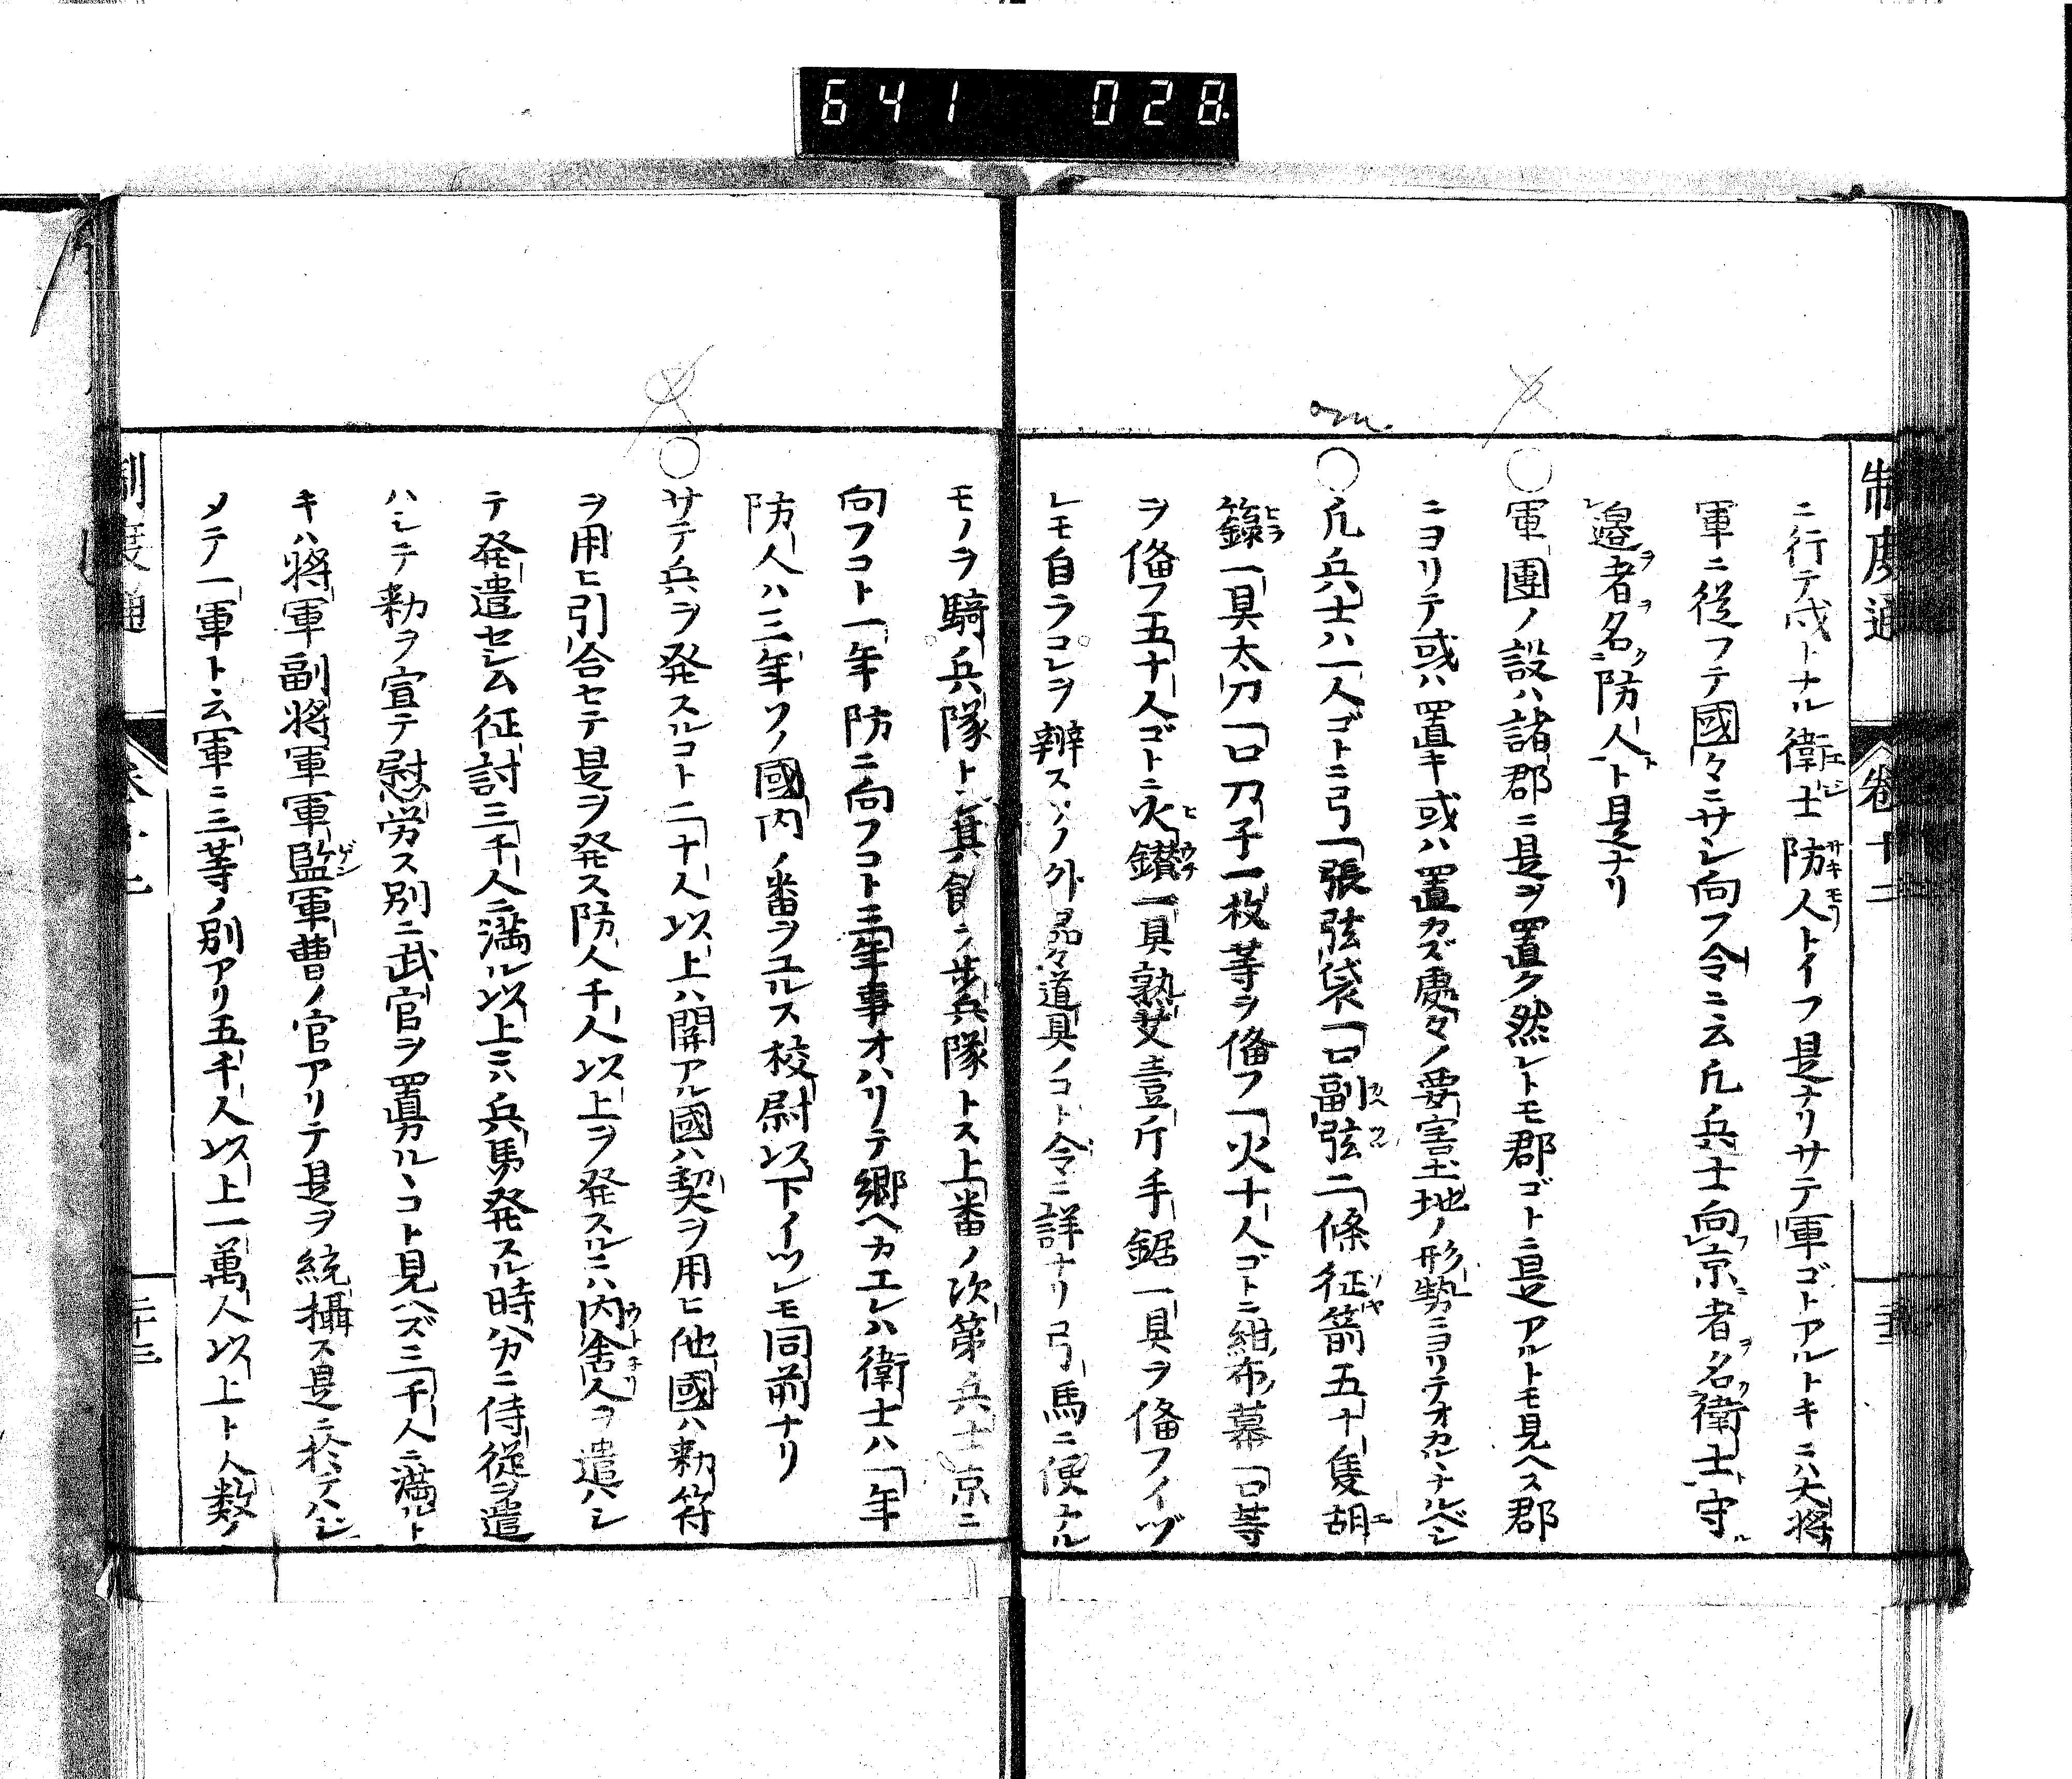 641 028
制度通 卷十二
ニ行テ戍トナル衛士防人トイフ是ナリサテ軍ゴトアルトキニハ大將
軍ニ從フテ國々ニサシ向フ令ニ云凡兵士向京者名衛士守
邊者名防人ト是ナリ
○軍團ノ設ハ諸郡ニ是ヲ置ク然レトモ郡ゴトニ是アルトモ見ヘス郡
ニヨリテ或ハ置キ或ハ置カズ處々ノ要害土地ノ形勢ニヨリテオカルヽナルベシ
○凡兵士ハ一人ゴトニ弓一張弦袋一口副弦二條征箭五十隻胡
籙一具太刀一口刀子一枚等ヲ備フ一火十人ゴトニ紺布ノ幕一口等
ヲ備フ五十人ゴトニ火鑚一具熟艾壹斤手鋸一具ヲ備フイヅ
レモ自ラコレヲ辨スソノ外品々道具ノコト令ニ詳ナリ弓馬ニ便ナル
モノヲ騎兵隊トシ其餘ヲ歩兵隊トス上番ノ次第兵士京ニ
向フコト一年防ニ向フコト三年事オハリテ郷ヘカエレハ衛士ハ一年
防人ハ三年ソノ國内ノ番ヲユルス校尉以下イツレモ同前ナリ
○サテ兵ヲ発スルコト二十人以上ハ開アル國ハ契ヲ用ヒ他國ハ勅符
ヲ用ヒ引合セテ是ヲ発ス防人千人以上ヲ発スルニハ内舎人ヲ遣ハシ
テ発遣セシム征討三千人ニ満ル以上ニハ兵馬発スル時ハカニ侍從ヲ遣
ハシテ勅ヲ宣テ慰労ス別ニ武官ヲ置カルヽコト見ヘズ三千人ニ満ルト
キハ將軍副將軍軍監軍曹ノ官アリテ是ヲ統攝ス是ニ於テハジ
メテ一軍ト云軍ニ三等ノ別アリ五千人以上一萬人以上ト人数ノ
制度通 二十三